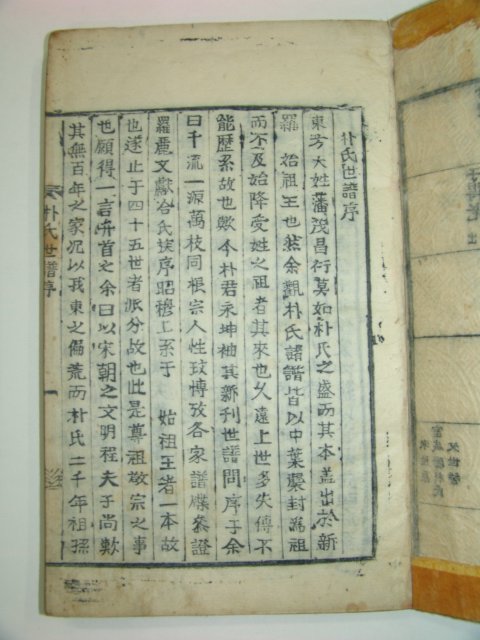 朴氏世譜序
東方大姓藩茂昌衍莫如朴氏之盛而其本盖出於新
羅 始祖王也然余觀朴氏諸譜皆以中葉蒙封爲祖
而不及始降受姓之祖者其來也久遠上世多失傳不
能歷系故也歟今朴君永坤袖其新刊世譜問序于余
曰千流一源萬枝同根宗人性玟博攷各家譜牒叅證
羅麗文獻合氏族序昭穆上系于 始祖王者一本故
也遂止于四十五世者派分故也此是尊祖敬宗之事
也願得一言弁首之余曰以宋朝之文明程夫子尚歎
其無百年之家况以我東之偏荒而朴氏二千年祖孫
朴氏世譜序
一